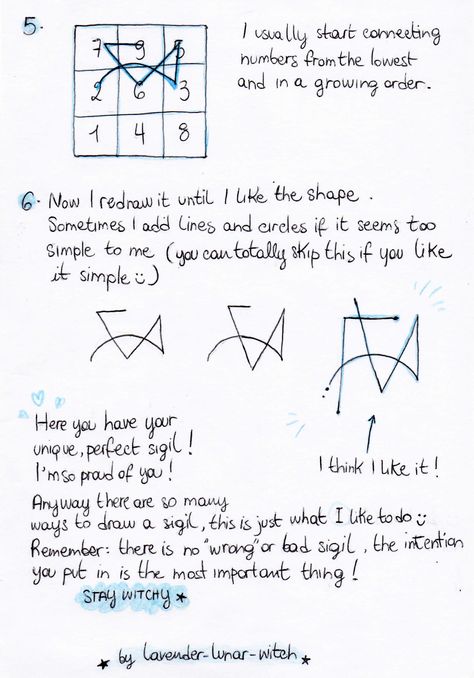 5.
7 9 5
2 6 3
1 4 8
I usually start connecting
numbers from the lowest
and in a growing order.
6. Now I redraw it until I like the shape.
Sometimes I add lines and circles if it seems too
simple to me (you can totally skip this if you like
it simple☺)
Here you have your
unique, perfect sigil!
I'm so proud of you!
I think I like it!
Anyway there are so many
ways to draw a sigil, this is just what I like to do ☺
Remember: there is no "wrong" or bad sigil, the intention
you put in is the most important thing!
STAY WITCHY ★
★ by lavender-lunar-witch ★